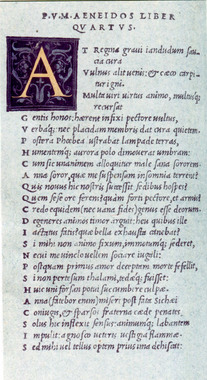 P. V. M. AENEIDOS LIBER
QVARTVS.
AT Regina graui iandudum sau
cia cura
Vulnus alit uenis: & cæco carpi
tur igni.
Multa uiri uirtus animo, multusq;
recursat
Gentis honos: hærent infixi pectore uultus,
Verbaq; nec placidam membris dat cura quietem.
Postera Phœbea lustrabat lampade terras,
Humentemq; aurora polo dimouerat umbram:
Cum sic unanimem alloquitur male sana sororem.
Anna soror, quæ me suspensam insomnia terrent?
Quis nouus hic nostris successit sedibus hospes?
Quem sese ore ferens? quàm forti pectore, et armis?
Credo equidem (nec uana fides) genus esse deorum.
Degeneres animos timor arguit. heu quibus ille
Iactatus fatis? quæ bella exhausta canebat?
Si mihi non animo fixum, immotumq; sederet,
Ne cui me uinclo uellem sociare iugali:
Postquam primus amor deceptam morte fefellit,
Si non pertæsum thalami, tedæq; fuisset:
Huic uni forsan potui succumbere culpæ.
Anna (fatebor enim) miseri post fata Sichæi
Coniugis, & sparsos fraterna cæde penates,
Solus hic inflexit sensus: animumq; labantem
Impulit: agnosco ueteris uestigia flammæ.
Sed mihi uel tellus optem prius ima dehiscat: